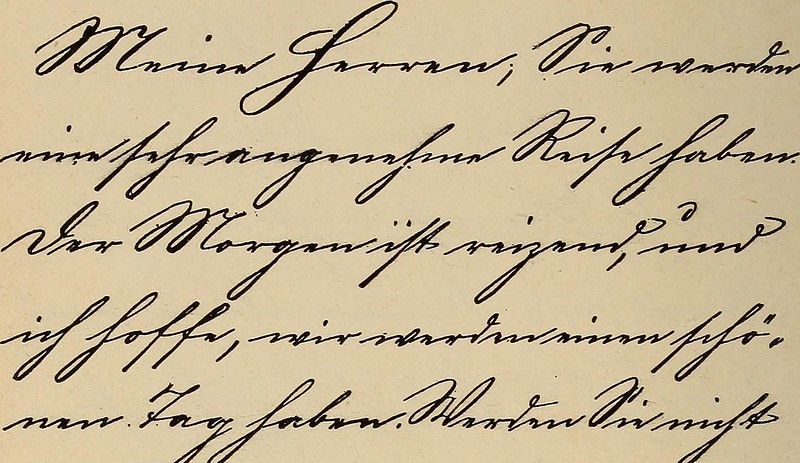 Meine Herren, Sie werden
eine sehr angenehme Reise haben.
Der Morgen ist reizend, und
ich hoffe, wir werden einen schö-
nen Tag haben. Werden Sie nicht